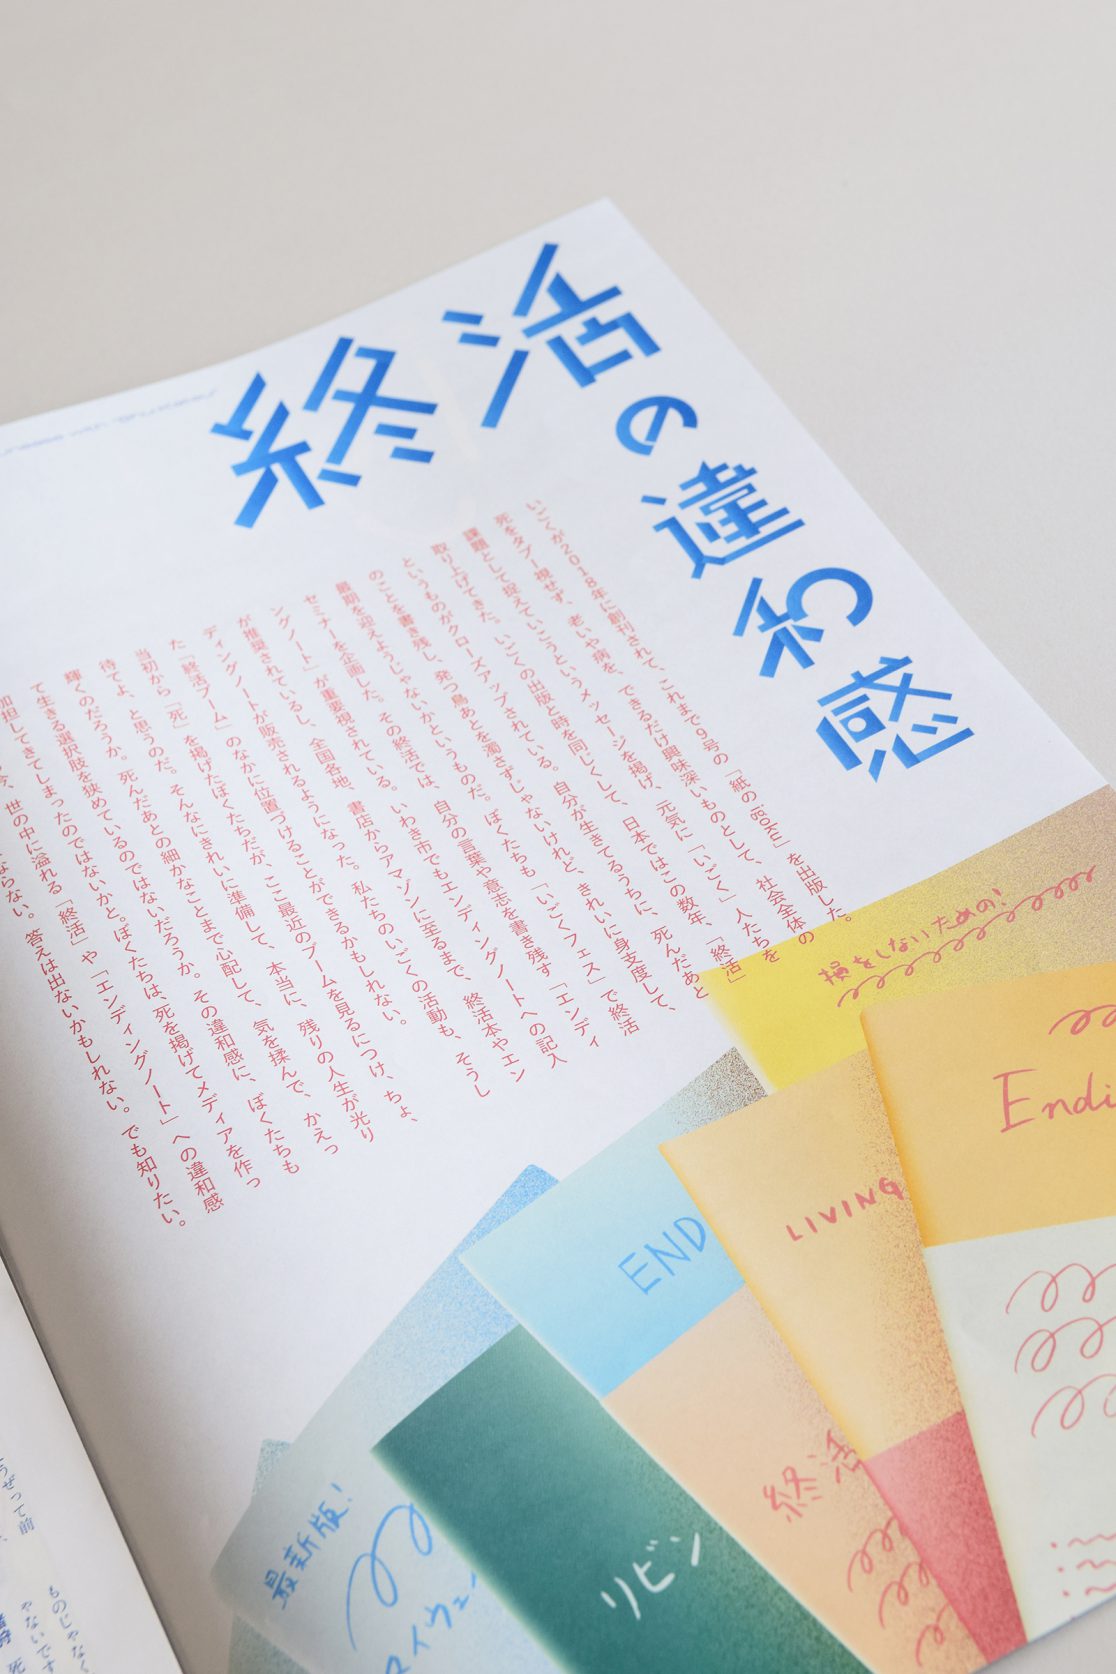 終活の違和感
いごくが2018年に創刊されて、これまで9号の「紙のigoku」を出版した。
死をタブー視せず、老いや病を、できるだけ興味深いものとして、社会全体の
課題として捉えていこうというメッセージを掲げ、元気に「いごく」人たちを
取り上げてきた。いごくの出版と時を同じくして、日本ではこの数年、「終活」
というものがクローズアップされている。自分が生きてるうちに、死んだあと
のことを書き残し、発つ鳥あとを濁さずじゃないけれど、きれいに身支度して、
最期を迎えようじゃないかというものだ。ぼくたちも「いごくフェス」で終活
セミナーを企画した。その終活では、自分の言葉や意志を書き残す「エンディ
ングノート」が重要視されている。いわき市でもエンディングノートへの記入
が推奨されているし、全国各地、書店からアマゾンに至るまで、終活本やエン
ディングノートが販売されるようになった。私たちのいごくの活動も、そうし
た「終活ブーム」のなかに位置づけることができるかもしれない。
当初から「死」を掲げたぼくたちだが、ここ最近のブームを見るにつけ、ちょ、
待てよ、と思うのだ。そんなにきれいに準備して、本当に、残りの人生が光り
輝くのだろうか。死んだあとの細かなことまで心配して、気を揉んで、かえっ
て生きる選択肢を狭めているのではないだろうか。その違和感に、ぼくたちも
加担してきてしまったのではないかと。ぼくたちは、死を掲げてメディアを作っ
世の中に溢れる「終活」や「エンディングノート」への違和感
ならない。答えは出ないかもしれない。でも知りたい。
損をしないための!
Endi
LIVING
END
終活
リビン
最新版!
マイウェ
ぜって前
ものじゃなく
やないです
死